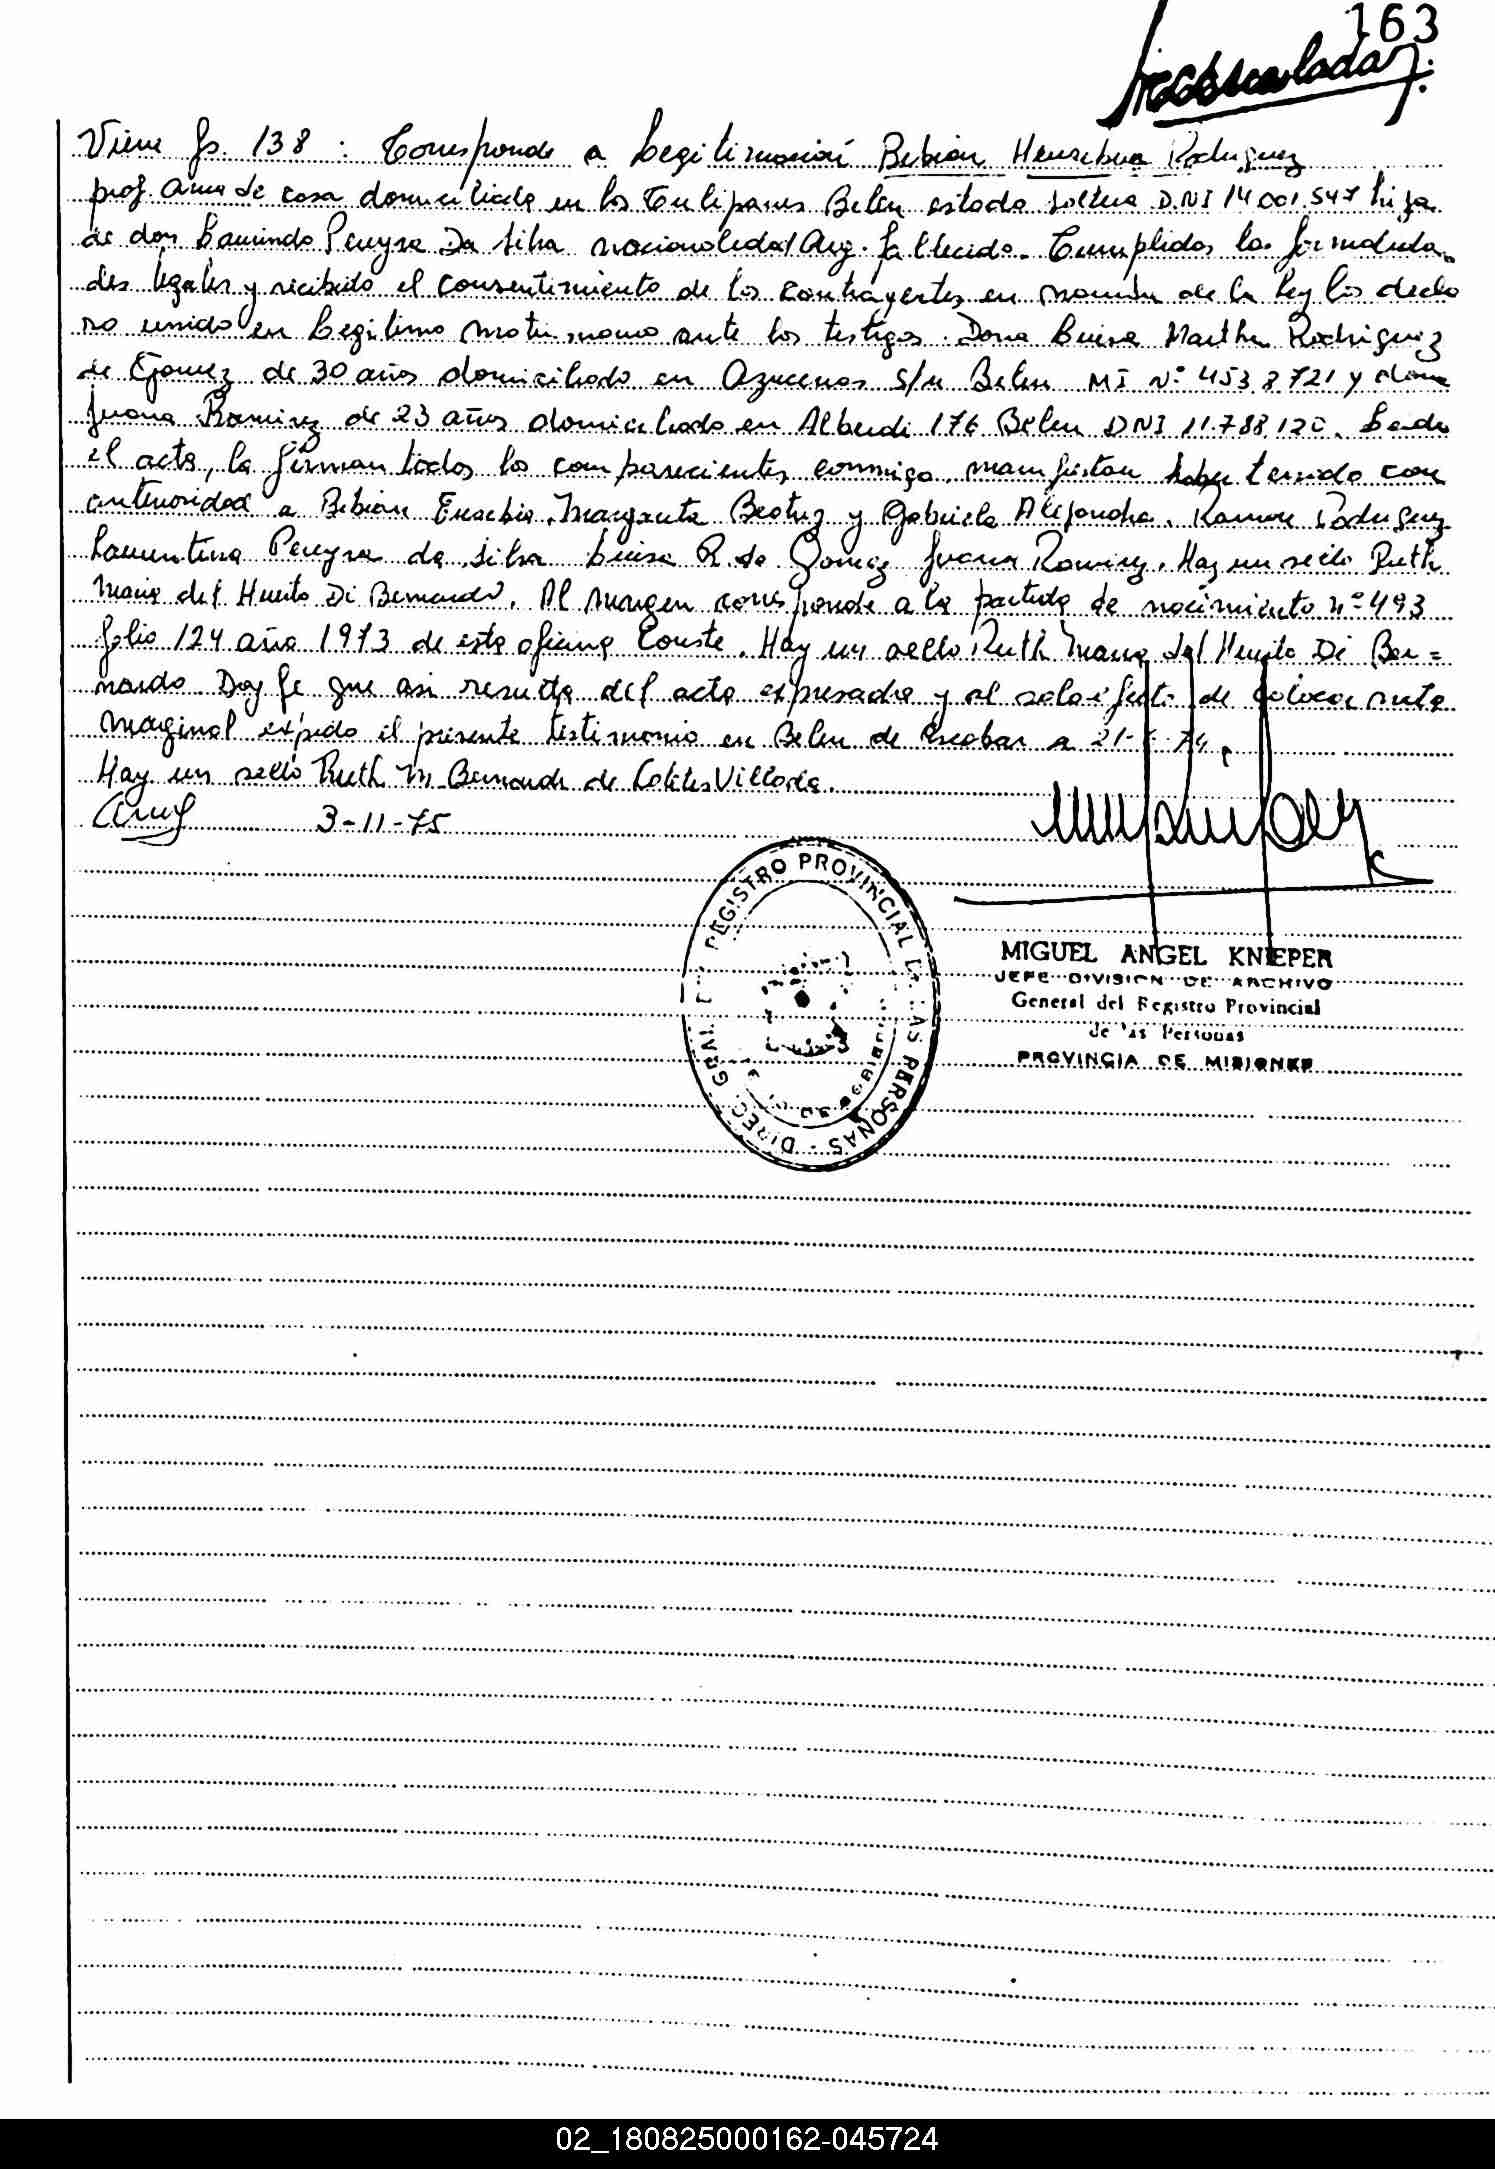 163
Viene fs. 138 : Corresponde a Legitimación Bibian Heusebia Rodriguez
prof. ama de casa domiciliada en los Tulipanes Belen estado soltera D.N.I 14.001.547 hija
de don Laurindo Pereyra Da Silva nacionalidad Arg. fallecido. Cumplidas las formalida
des legales y recibido el consentimiento de los contrayentes en nombre de la ley los decla
ro unido en legitimo matrimonio ante los testigos. Dona Luisa Martha Rodriguez
de Gomez de 30 años domiciliado en Azucenas s/n Belen MI Nº 453 8721 y dona
Juana Ramirez de 23 años domiciliado en Alberdi 176 Belen DNI 11.788.120. Leida
el acta, la firman todos los comparecientes conmigo, manifiestan haber tenido con
anterioridad a Bibian Eusebia, Margarita Beatriz y Gabriela Alejandra. Ramon Rodriguez
Laurentina Pereyra da Silva Luisa R. de Gomez Juana Ramirez. Hay un sello Ruth
Maria del Huerto Di Bernardo. Al margen corresponde a la partida de nacimiento nº 493
folio 124 año 1973 de esta oficina Conste. Hay un sello Ruth Maria del Huerto Di Ber=
nardo Doy fe que asi resulta del acta expresada y al solo efecto de colocar nota
marginal expido el presente testimonio en Belen de Escobar a 21- -74.
Hay un sello Ruth M. Bernardo de Villada.
3-11-75
DIREC. GRAL. DEL REGISTRO PROVINCIAL DE LAS PERSONAS
MIGUEL ANGEL KNIEPER
JEFE DIVISION DE ARCHIVO
General del Registro Provincial
de las Personas
PROVINCIA DE MISIONES
02_180825000162-045724